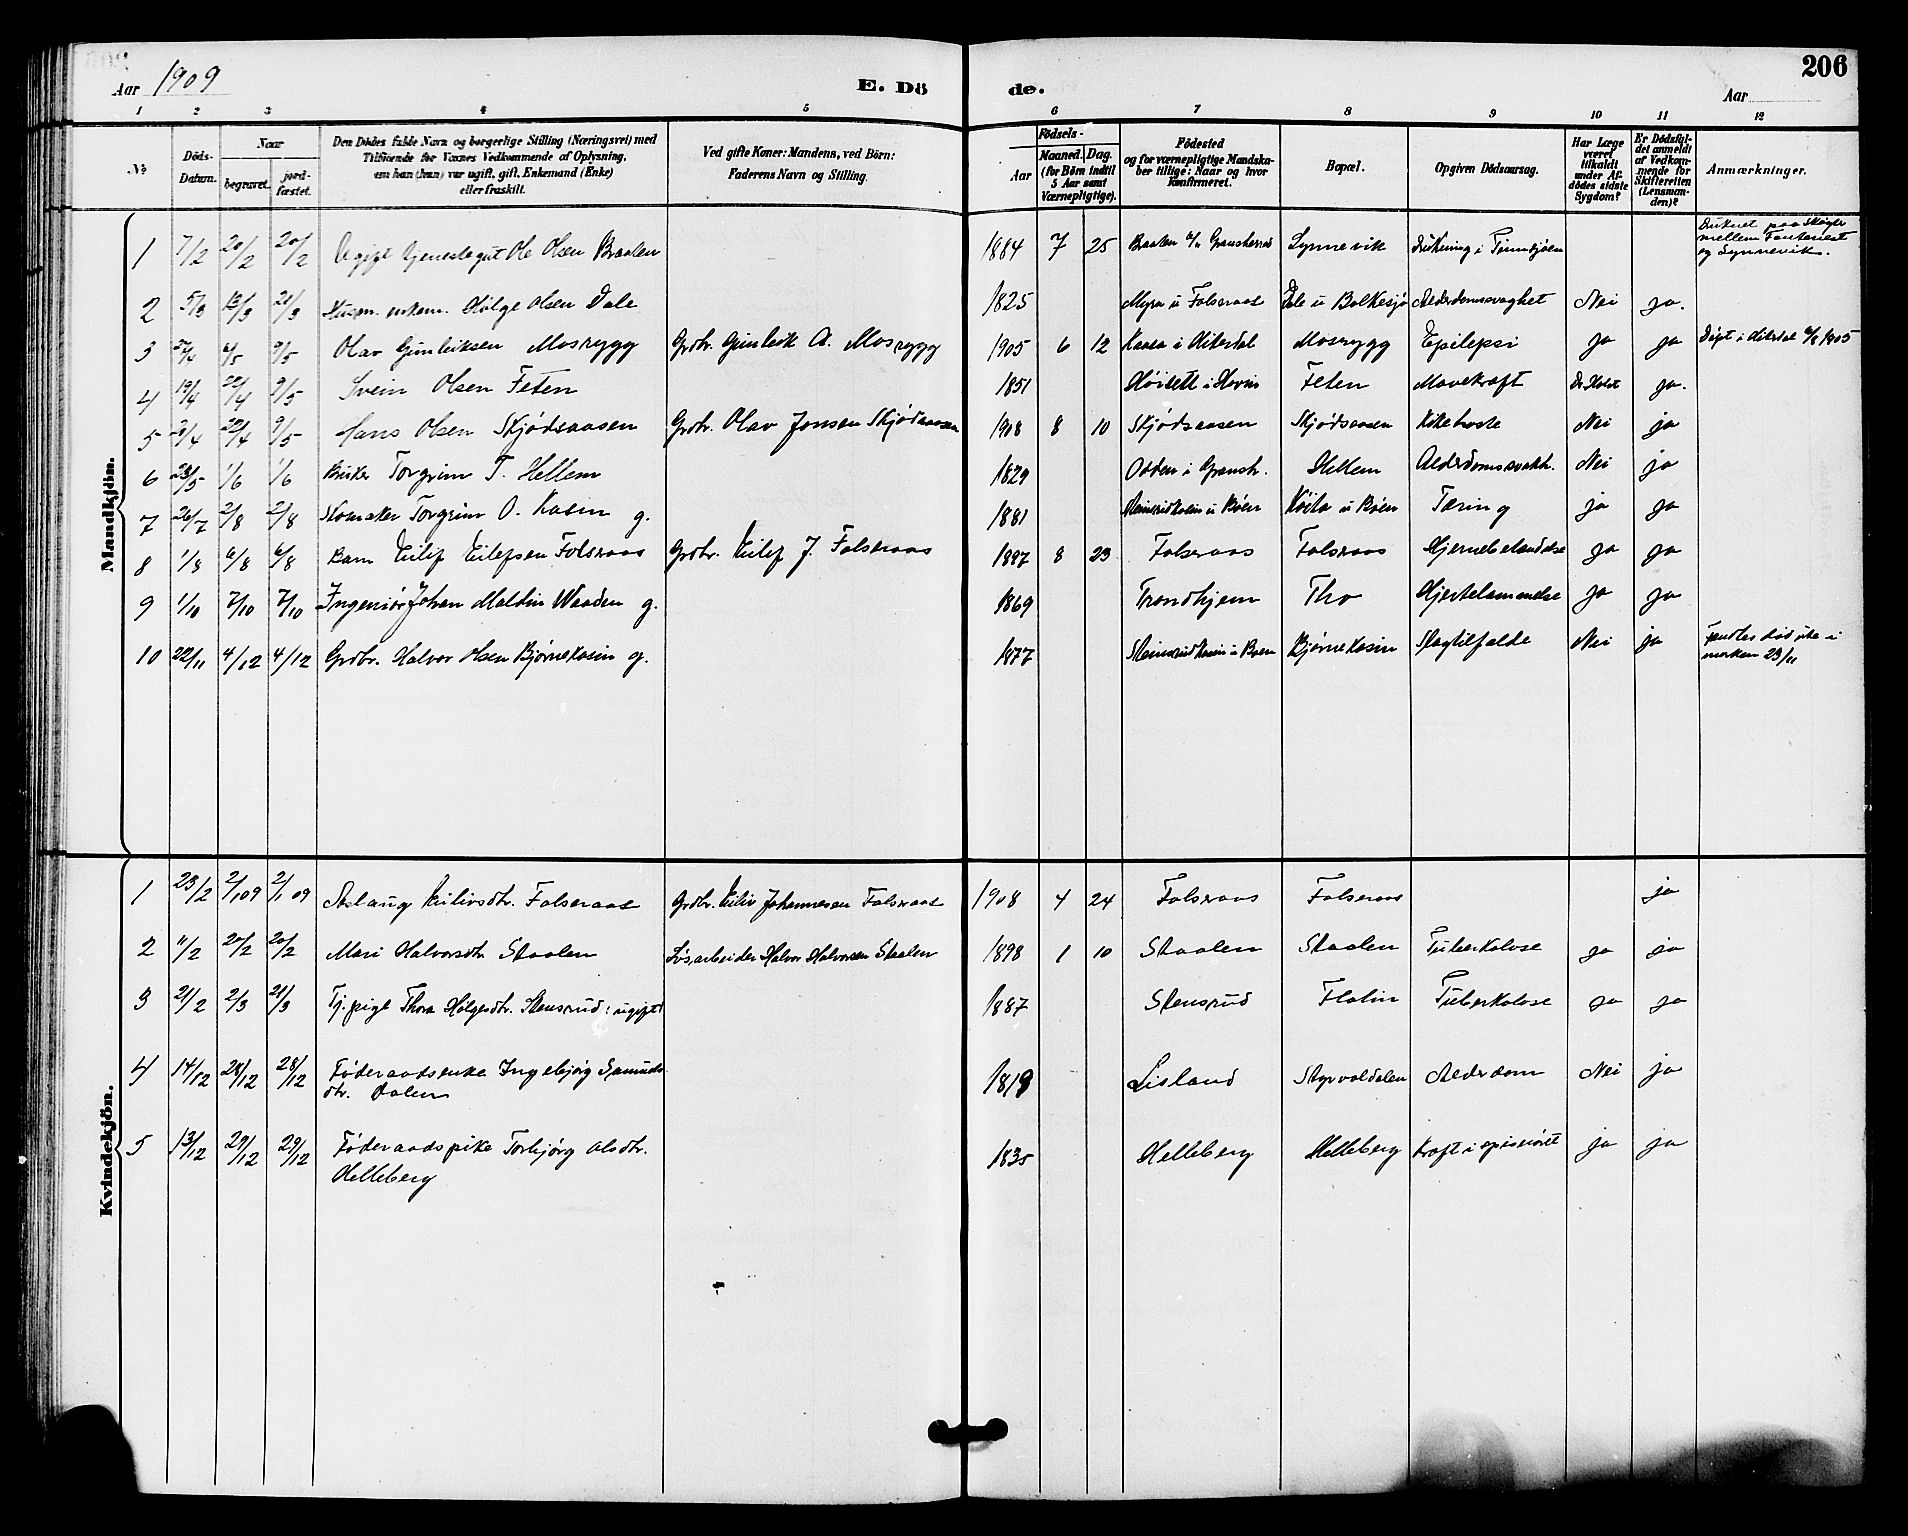 206
Aar 1909
E. Dö
de.
Aar
1 2 3 4 5 6 7 8 9 10 11 12
No
Döds-Datum.
Naar
begravet.
jord-fæstet.
Den Dödes fulde Navn og borgerlige Stilling (Næringsvei) med
Tilföiende for Voxnes Vedkommende af Oplysning,
om han (hun) var ugift, gift, Enkemand (Enke)
eller fraskilt.
Ved gifte Koner: Mandens, ved Börn:
Faderens Navn og Stilling.
Födsels-
Aar
Maaned. Dag.
(for Börn indtil
5 Aar samt
Værnepligtige).
Födested
og for værnepligtige Mandska-
ber tillige: Naar og hvor
konfirmeret.
Bopæl.
Opgiven Dödsaarsag.
Har Læge
været
tilkaldt
under Af-
dödes sidste
Sygdom?
Er Dödsfal-
det anmeldt
af Vedkom-
mende for
Skifteretten
(Lensman-
den)?
Anmærkninger.
Mandkjön.
1 7/2 20/2 20/2 Ugift tjenestegut Ole Olsen Braaten 1884 7 25 Braaten Gransherad Synnevik Drukning i Tinnsjøen Druknet paa Skøyter
mellem Fantenest
og Synnevik.
2 5/3 13/3 21/3 Husm. enkem. Hølge Olsen Dale 1825 Myra u Folseraas Dale u Bolkesjø Alderdomssvaghet Nei ja.
3 27/4 4/5 9/5 Olav Gunleiksen Mosrygg Grdbr. Gunleik A. Mosrygg 1905 6 12 Kaasa i Hiterdal Mosrygg Epilepsi ja ja Døpt i Hiterdal 6/8 1905
4 19/4 22/4 9/5 Svein Olsen Feten 1851 Høisett i Hovin Feten Mavekræft Dr. Holst ja.
5 22/4 9/5 Hans Olsen Skjødsaasen Grdbr. Olav Jonsen Skjødsaasen 1908 8 10 Skjødsaasen Skjødsaasen Kikhoste Nei ja
6 23/5 1/6 1/6 Bruker Torgrim T. Hellem 1829 Odden i Gransh. Hellem Alderdomssvakh. Nei ja
7 26/7 2/8 2/8 Skomaker Torgrim O. Kasin g. 1881 Stensrudkasin u Bøen Køita u Bøen Tæring ja ja
8 1/8 6/8 6/8 Barn Eilef Eilefsen Folseraas Grdbr. Eilef J. Folseraas 1897 8 23 Folseraas Folseraas Hjernebetændelse ja ja
9 1/10 7/10 7/10 Ingeniør Johan Maldin Waaden g. 1869 Trondhjem Tho Hjertelammelse ja ja
10 22/11 4/12 4/12 Grdbr. Halvor Olsen Bjørnekasin g. 1877 Steinsrudkasin u Bøen Bjørnekasin Slagtilfælde Nei ja Fandtes død ute i
marken 23/11
Kvindekjön.
1 23/2 2/1 09 2/1 09 Aslaug Eilivsdtr. Folseraas Grdbr. Eiliv Johannesen Folseraas 1908 4 24 Folseraas Folseraas ja
2 11/2 20/2 20/2 Mari Halvorsdtr Staalen Løsarbeider Halvor Halvorsen Staalen 1898 1 10 Staalen Staalen Tuberkolose ja ja
3 21/2 2/3 21/3 Tj.pige Thora Hølgesdtr. Stensrud: ugift 1887 Stensrud Flatin Tuberkolose ja ja
4 14/12 28/12 28/12 Føderaadsenke Ingebjørg Gjamunds
dtr. Dalen 1819 Lisland Styrvoldalen Alderdom Nei ja
5 13/12 29/12 29/12 Føderaadspike Torbjørg Olsdtr.
Helleberg 1835 Helleberg Helleberg Kræft i spiserøret ja ja